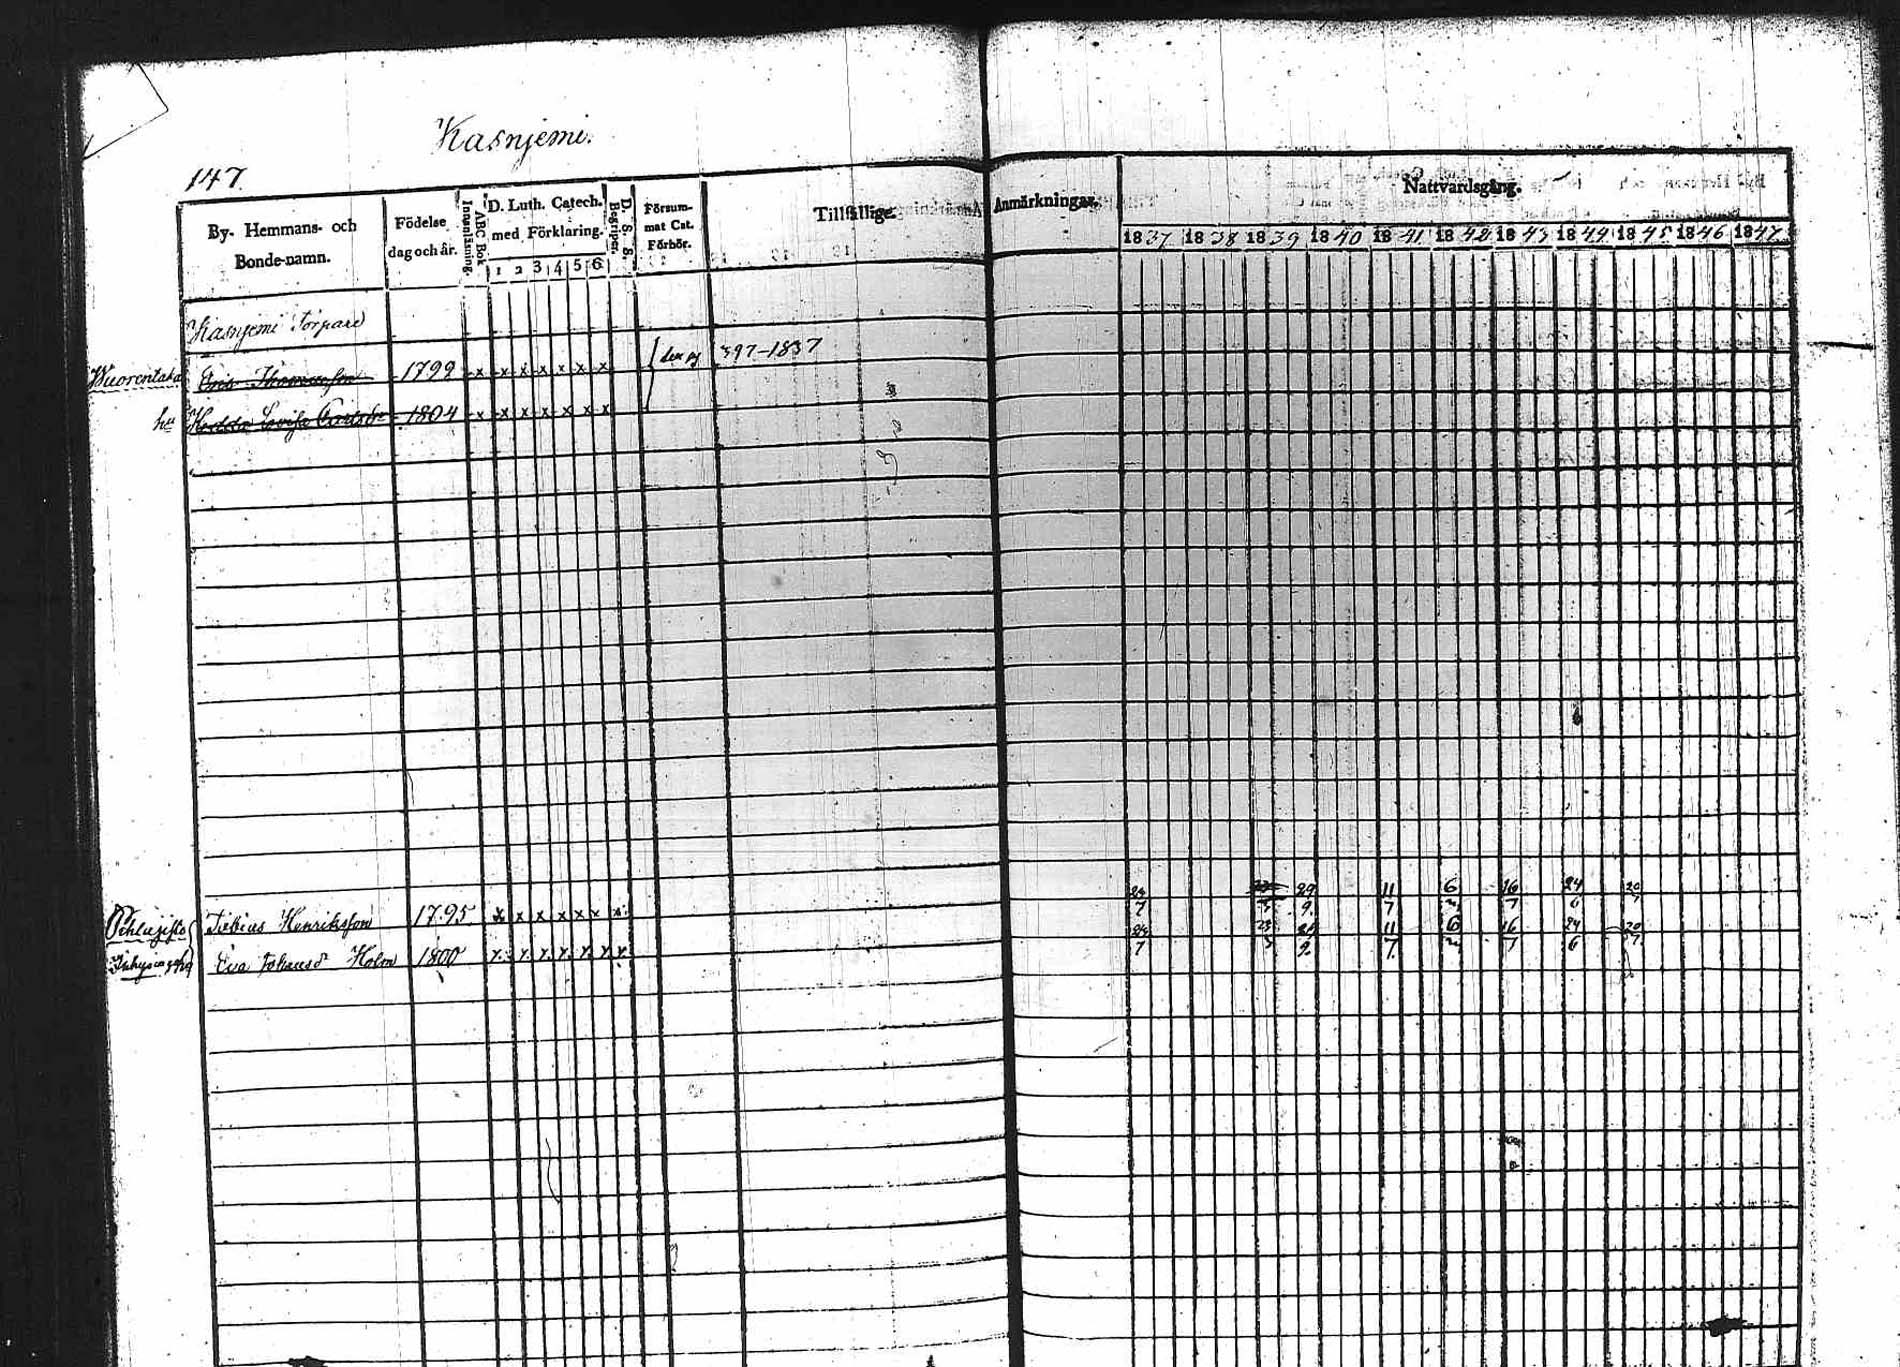 Kasnjemi.
147.
By- Hemmans- och Bonde-namn.
Födelse dag och år.
ABC Bok Innanläsning.
D. Luth. Catech. med Förklaring.
1 2 3 4 5 6
D. S. S. Begriper.
Försum- mat Cat. Förhör.
Tillfällige.
Anmärkningar.
Nattvardsgång.
1837 1838 1839 1840 1841 1842 1843 1844 1845 1846 1847
Kasnjemi Torpare
Wuorentaka Thomasson 1799 x x x x x x x 397-1837
hu Lovisa 1804 x x x x x x x
Tobias Henriksson 1795 x x x x x x x 24/7 29/9 11/7 6 16/7 24/6 20/7
Eva Johansdr Holm 1800 x x x x x x x 24/7 11/7 6 16/7 24/6 20/7